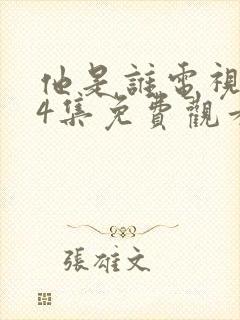 他是誰電視
4集免費觀
張雄文